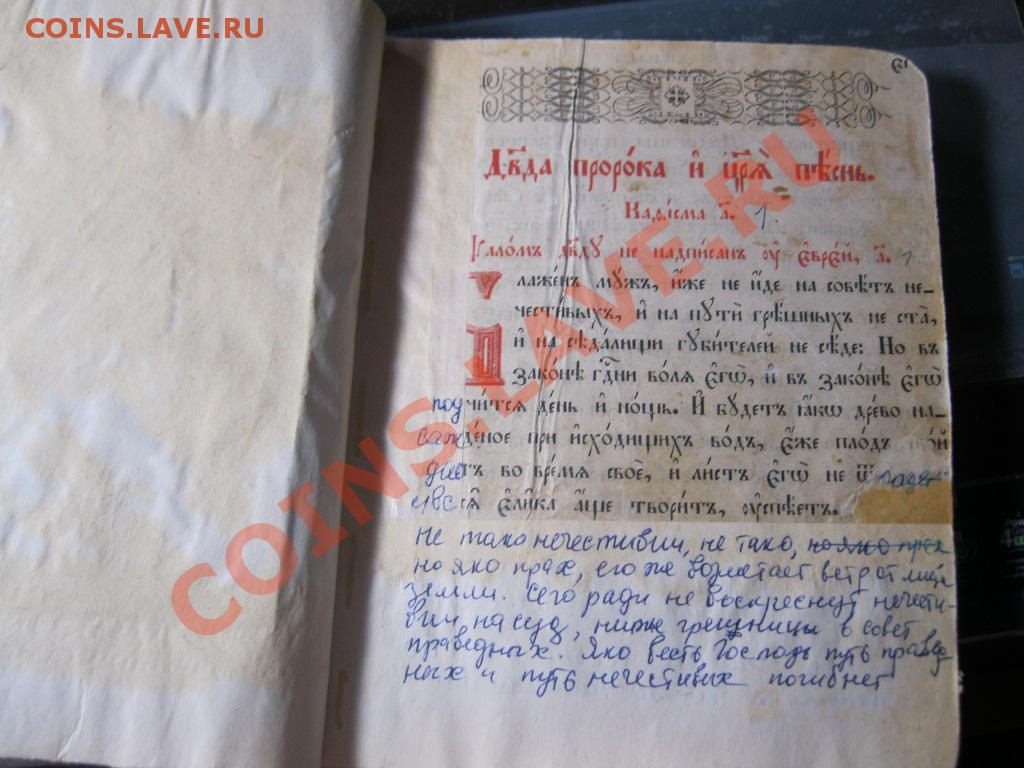 COINS.LAVE.RU
є҃і
Дв҃да проро́ка и҆ цр҃ѧ̀ пѣ́снь.
Каѳі́сма а҃. 1.
ѱало́мъ дв҃дꙋ не надпи́санъ ᲂу҆ є҆врє́й, а҃. 1
лаже́нъ мꙋ́жъ, и҆́же не и҆́де на совѣ́тъ не-
чести́выхъ, и҆ на пꙋтѝ грѣ́шныхъ не ста̀,
и҆ на сѣда́лищи гꙋби́телей не сѣ́де: Но въ
зако́нѣ гдⷭ҇ни во́лѧ є҆гѡ̀, и҆ въ зако́нѣ є҆гѡ̀
поучи́тсѧ де́нь и҆ но́щь. И҆ бꙋ́детъ ꙗ҆́кѡ дре́во на-
сажде́ное при и҆схо́дищихъ во́дъ, є҆́же пло́дъ сво́й
дастъ во вре́мѧ своѐ, и҆ ли́стъ є҆гѡ̀ не ѿпадет
и всѧ̑ є҆ли́ка а҆́ще твори́тъ, ᲂу҆спѣ́етъ.
Не тако нечестивии, не тако, но яко прах
но яко прах, его же возметает ветр от лица
земли. Сего ради не воскреснут нечести-
вии, на суд, ниже грешницы в совет
праведных. Яко весть Господь путь правед
ных и путь нечестивих погибнет
COINS.LAVE.RU